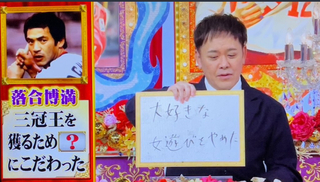 落合博満
三冠王を
獲るため?
にこだわった
大好きな
女遊びをやめた